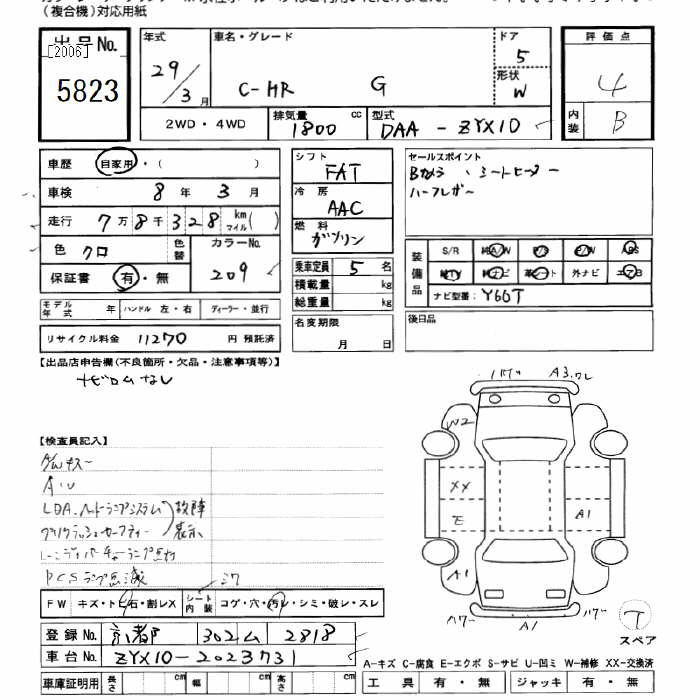 (複合機)対応用紙
出品No.
[2006]
5823
年式 29/3月
車名・グレード C-HR G
ドア 5
形状 W
評価点 4
内装 B
2WD・4WD
排気量 1800 cc
型式 DAA-ZYX10
車歴 自家用・( )
車検 8年 3月
走行 7万8千328 km マイル( )
色 クロ 色替
カラーNo. 209
保証書 有・無
シフト FAT
冷房 AAC
燃料 ガソリン
乗車定員 5名
積載量 kg
総重量 kg
セールスポイント
Bカメラ、シートヒーター
装備品
S/R 純A/W P/S P/W ABS
純TV 純ナビ 革シート 外ナビ エアB
ナビ型番: Y66T
モデル年式 年 ハンドル 左・右 ディーラー・並行
リサイクル料金 11270 円 預託済
名変期限 月 日
後日品
【出品店申告欄(不良箇所・欠品・注意事項等)】
ナビロムなし
【検査員記入】
A/Wキズ
A・U
故障
表示
PCSランプ点滅
FW キズ・トビ石・割レX
シート内装 コゲ・穴・汚レ・シミ・破レ・スレ
登録No. 京都 302 ム 2818
車台No. ZYX10-2023731
車庫証明用 長さ cm 幅 cm 高さ cm
A3.ワレ
W2
XX
E
A1
A1
A1
T
スペア
A-キズ C-腐食 E-エクボ S-サビ U-凹ミ W-補修 XX-交換済
工具 有・無 ジャッキ 有・無